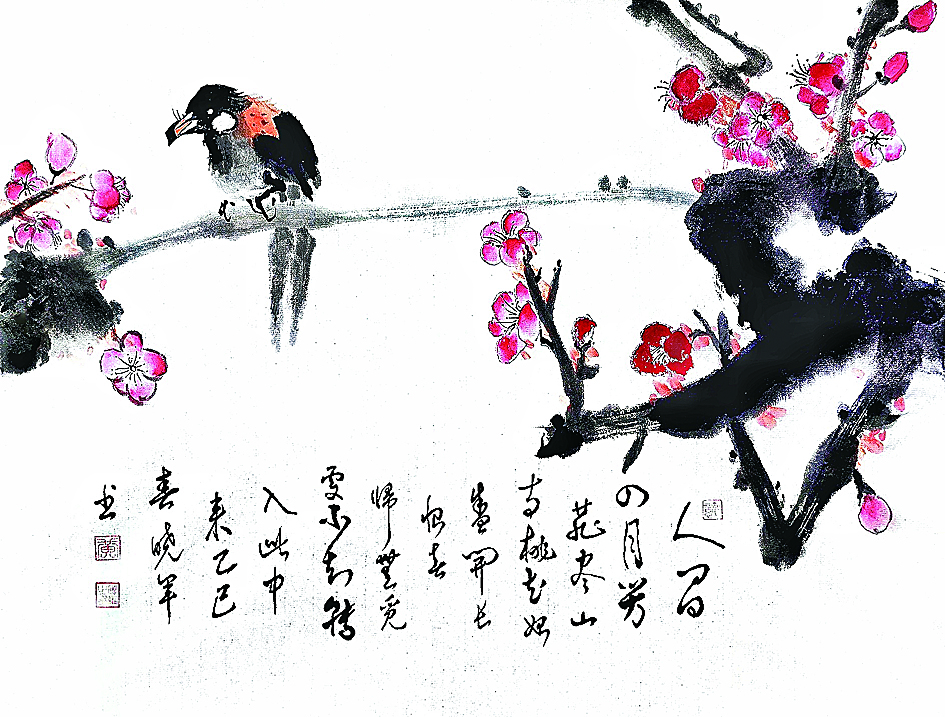 人间
四月芳
菲尽山
寺桃花始
盛開长
恨春
帰無觅
處不知轉
入此中
来乙巳
春晓军
书
黄